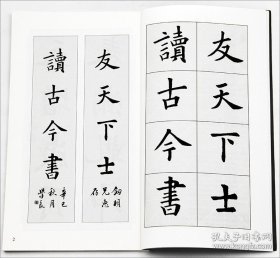 友天下士
明兄惠存
讀古今書
辛巳秋月
2
友天下士
讀古今書
孔夫子旧书网